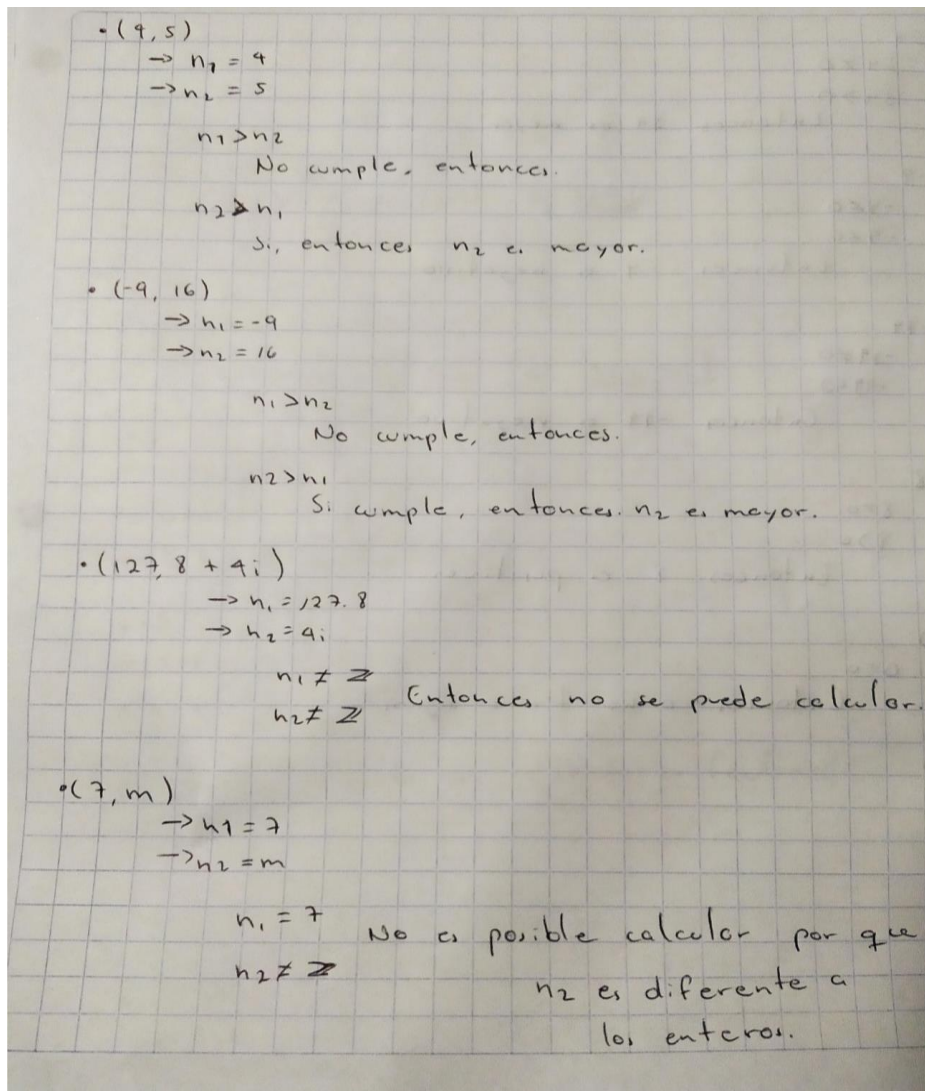 • (4, 5)
→ n1 = 4
→ n2 = 5
n1 > n2
No cumple, entonces.
n2 > n1
Si, entonces n2 es mayor.
• (-9, 16)
→ n1 = -9
→ n2 = 16
n1 > n2
No cumple, entonces.
n2 > n1
Si cumple, entonces. n2 es mayor.
• (127, 8 + 4i)
→ n1 = 127.8
→ n2 = 4i
n1 ≠ ℤ
n2 ≠ ℤ Entonces no se puede calcular.
• (7, m)
→ n1 = 7
→ n2 = m
n1 = 7 No es posible calcular por que
n2 ≠ ℤ n2 es diferente a
los enteros.